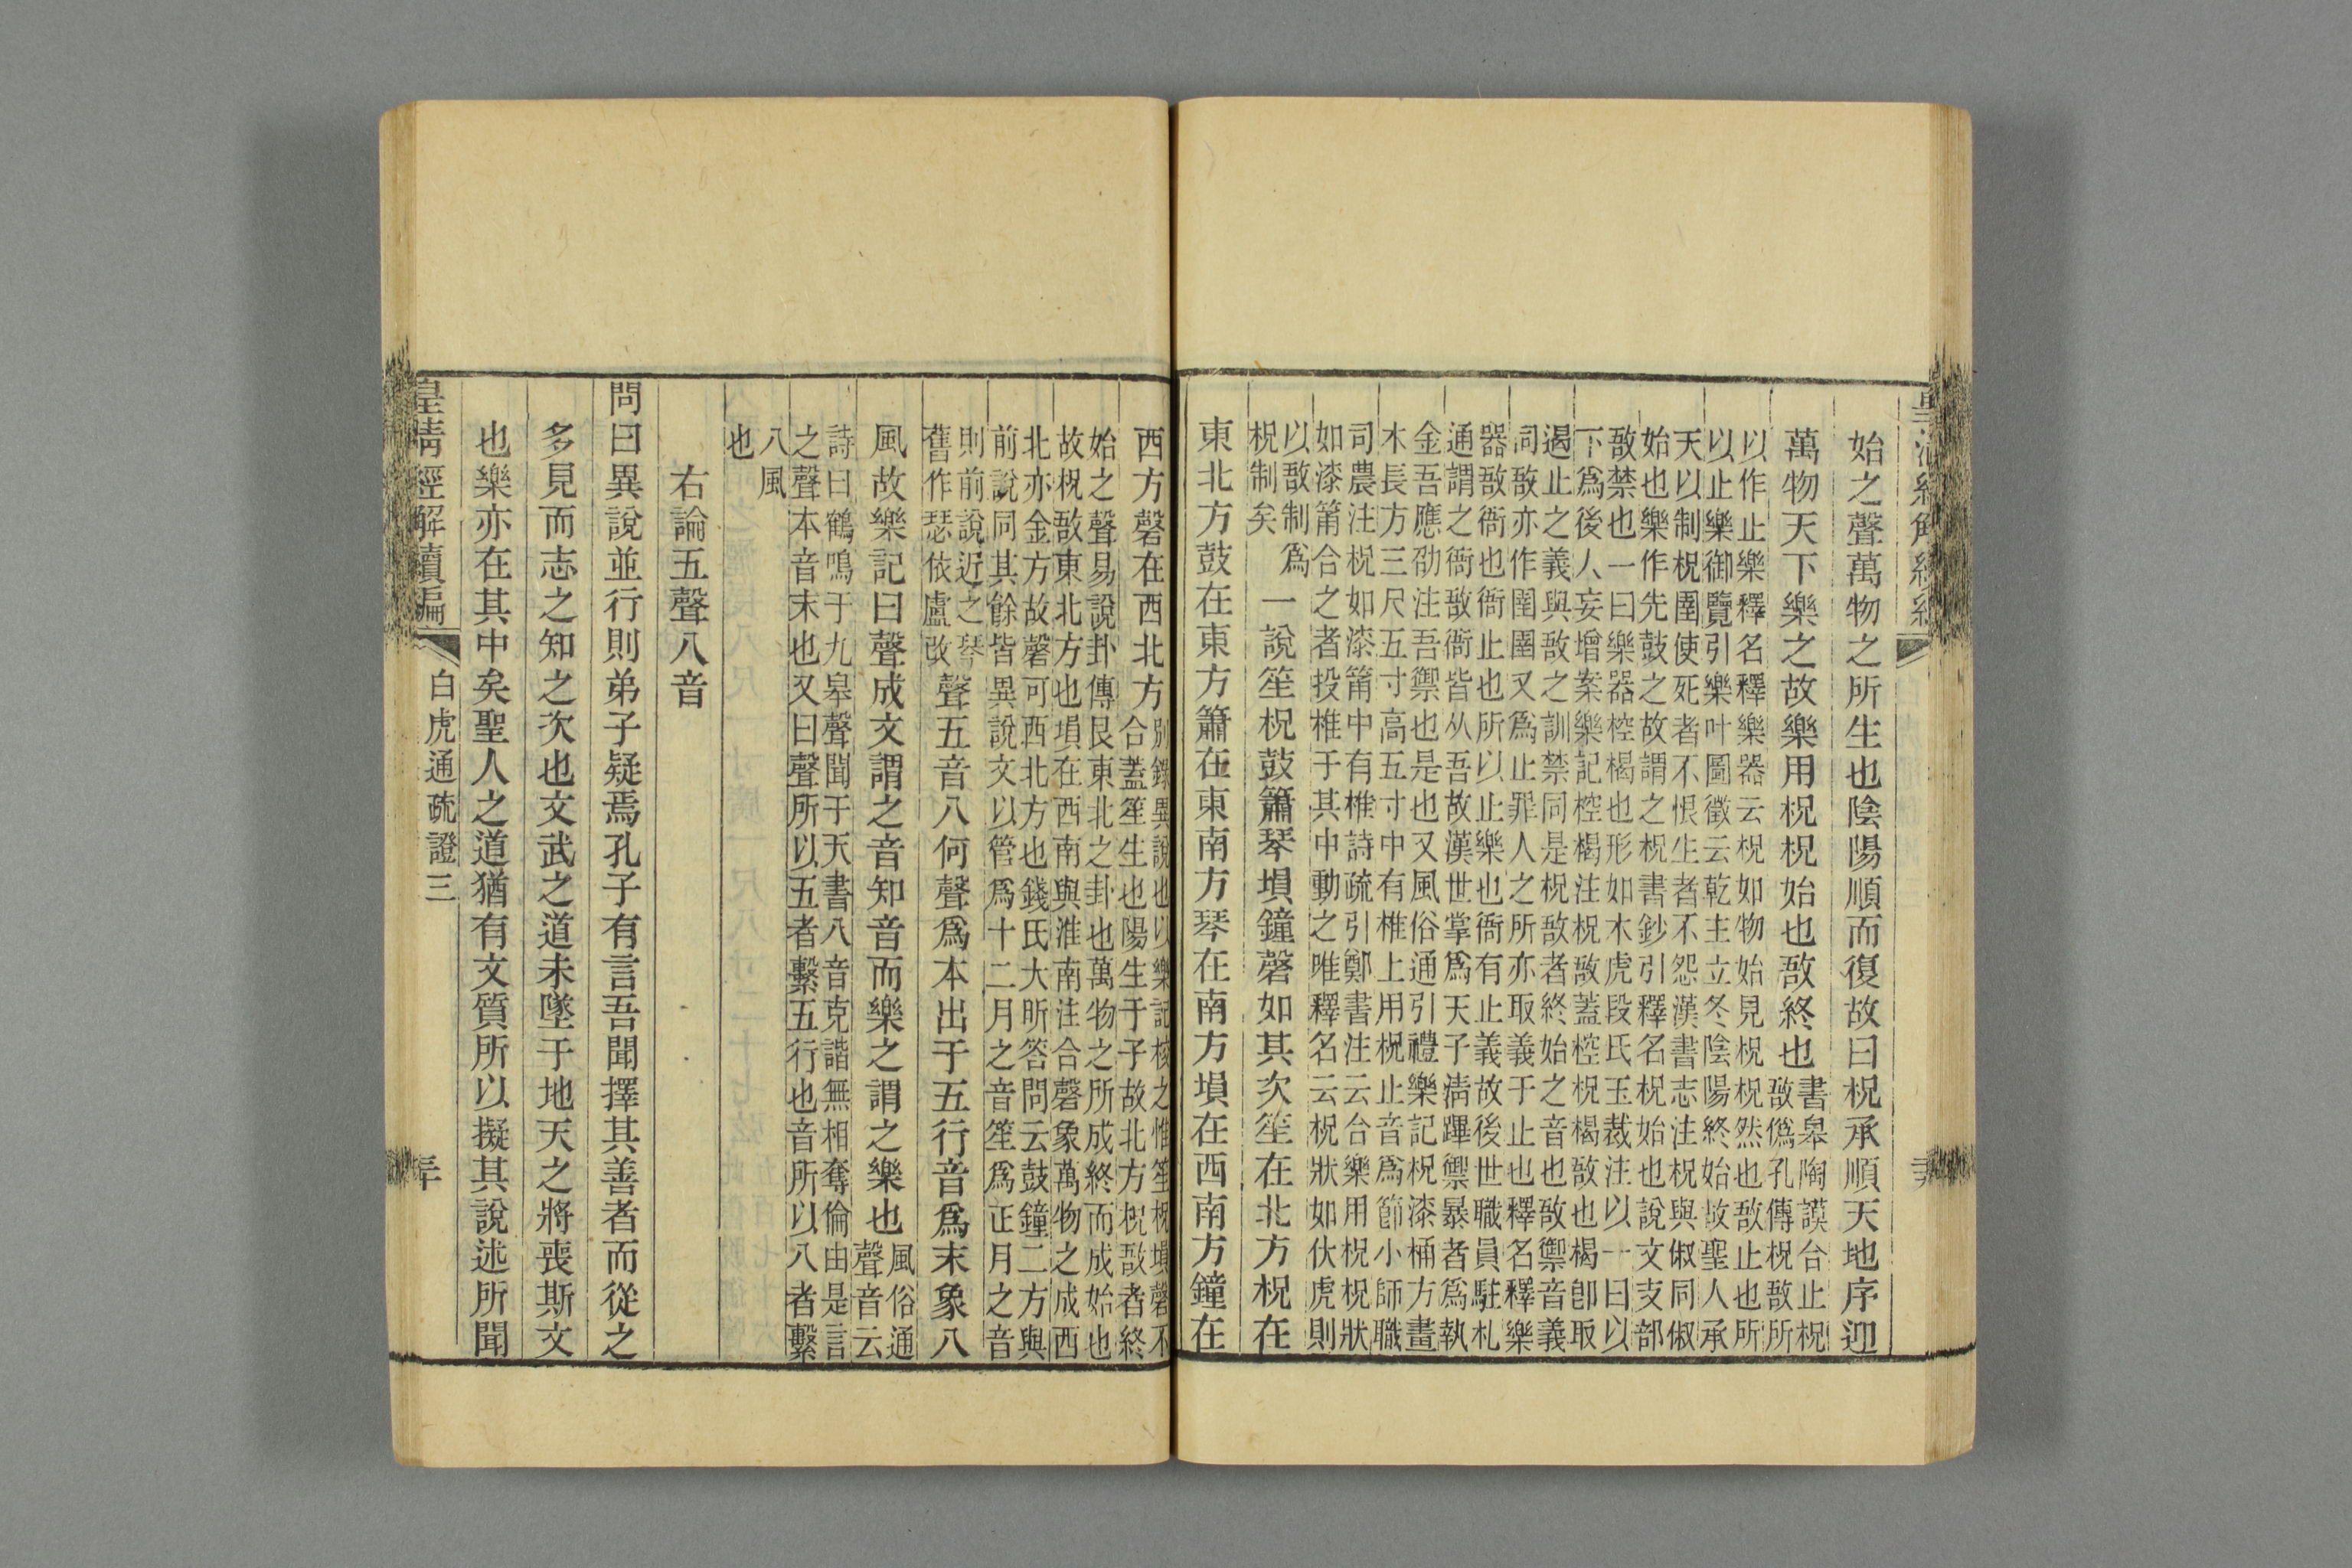 始之聲萬物之所生也陰陽順而復故曰柷承順天地序迎
萬物天下樂之故樂用柷柷始也敔終也
書皋陶謨合止柷
敔僞孔傳柷敔所
以作止樂釋名釋樂器云柷如物始見柷柷然也敔止也所
以止樂御覽引樂叶圖徵云乾主立冬陰陽終始故聖人承
天以制柷圉使死者不恨生者不怨漢書志注柷與俶同俶
始也樂作先鼓之故謂之柷書鈔引釋名柷始也說文攴部
敔禁也一曰樂器椌楬也形如木虎段氏玉裁注以一曰以
下爲後人妄增案樂記椌楬注柷敔蓋椌柷楬敔也楬卽取
遏止之義與敔之訓禁同是柷敔者終始之音也敔禦音義
詞敔亦作圉圉又爲止罪人之所亦取義于止也釋名釋樂
器敔衙也衙止也所以止樂也衙有止義故後世職員駐札
通謂之衙敔衙皆从吾故漢世掌爲天子淸蹕禦暴者爲執
金吾應劭注吾禦也是也又風俗通引禮樂記柷漆桶方畫
木長方三尺五寸高五寸中有椎上用柷止音爲節小師職
司農注柷如漆筩中有椎詩疏引鄭書注云合樂用柷柷狀
如漆筩合之者投椎于其中動之唯釋名云柷狀如伏虎則
以敔制爲
柷制矣
一說笙柷鼓簫琴塤鐘磬如其次笙在北方柷在
東北方鼓在東方簫在東南方琴在南方塤在西南方鐘在
西方磬在西北方
別錄異說也以樂記核之惟笙柷塤磬不
合蓋笙生也陽生于子故北方柷敔者終
始之聲易說卦傳艮東北之卦也萬物之所成終而成始也
故柷敔東北方也塤在西南與淮南注合磬象萬物之成西
北亦金方故磬可西北方也錢氏大昕答問云鼓鐘二方與
前說同其餘皆異說文以管爲十二月之音笙爲正月之音
則前說近之琴
舊作瑟依盧改
聲五音八何聲爲本出于五行音爲末象八
風故樂記曰聲成文謂之音知音而樂之謂之樂也
風俗通
聲音云
詩曰鶴鳴于九皋聲聞于天書八音克諧無相奪倫由是言
之聲本音末也又曰聲所以五者繫五行也音所以八者繫
八風
也
右論五聲八音
問曰異說並行則弟子疑焉孔子有言吾聞擇其善者而從之
多見而志之知之次也文武之道未墜于地天之將喪斯文
也樂亦在其中矣聖人之道猶有文質所以擬其說述所聞
皇淸經解續編
白虎通疏證三